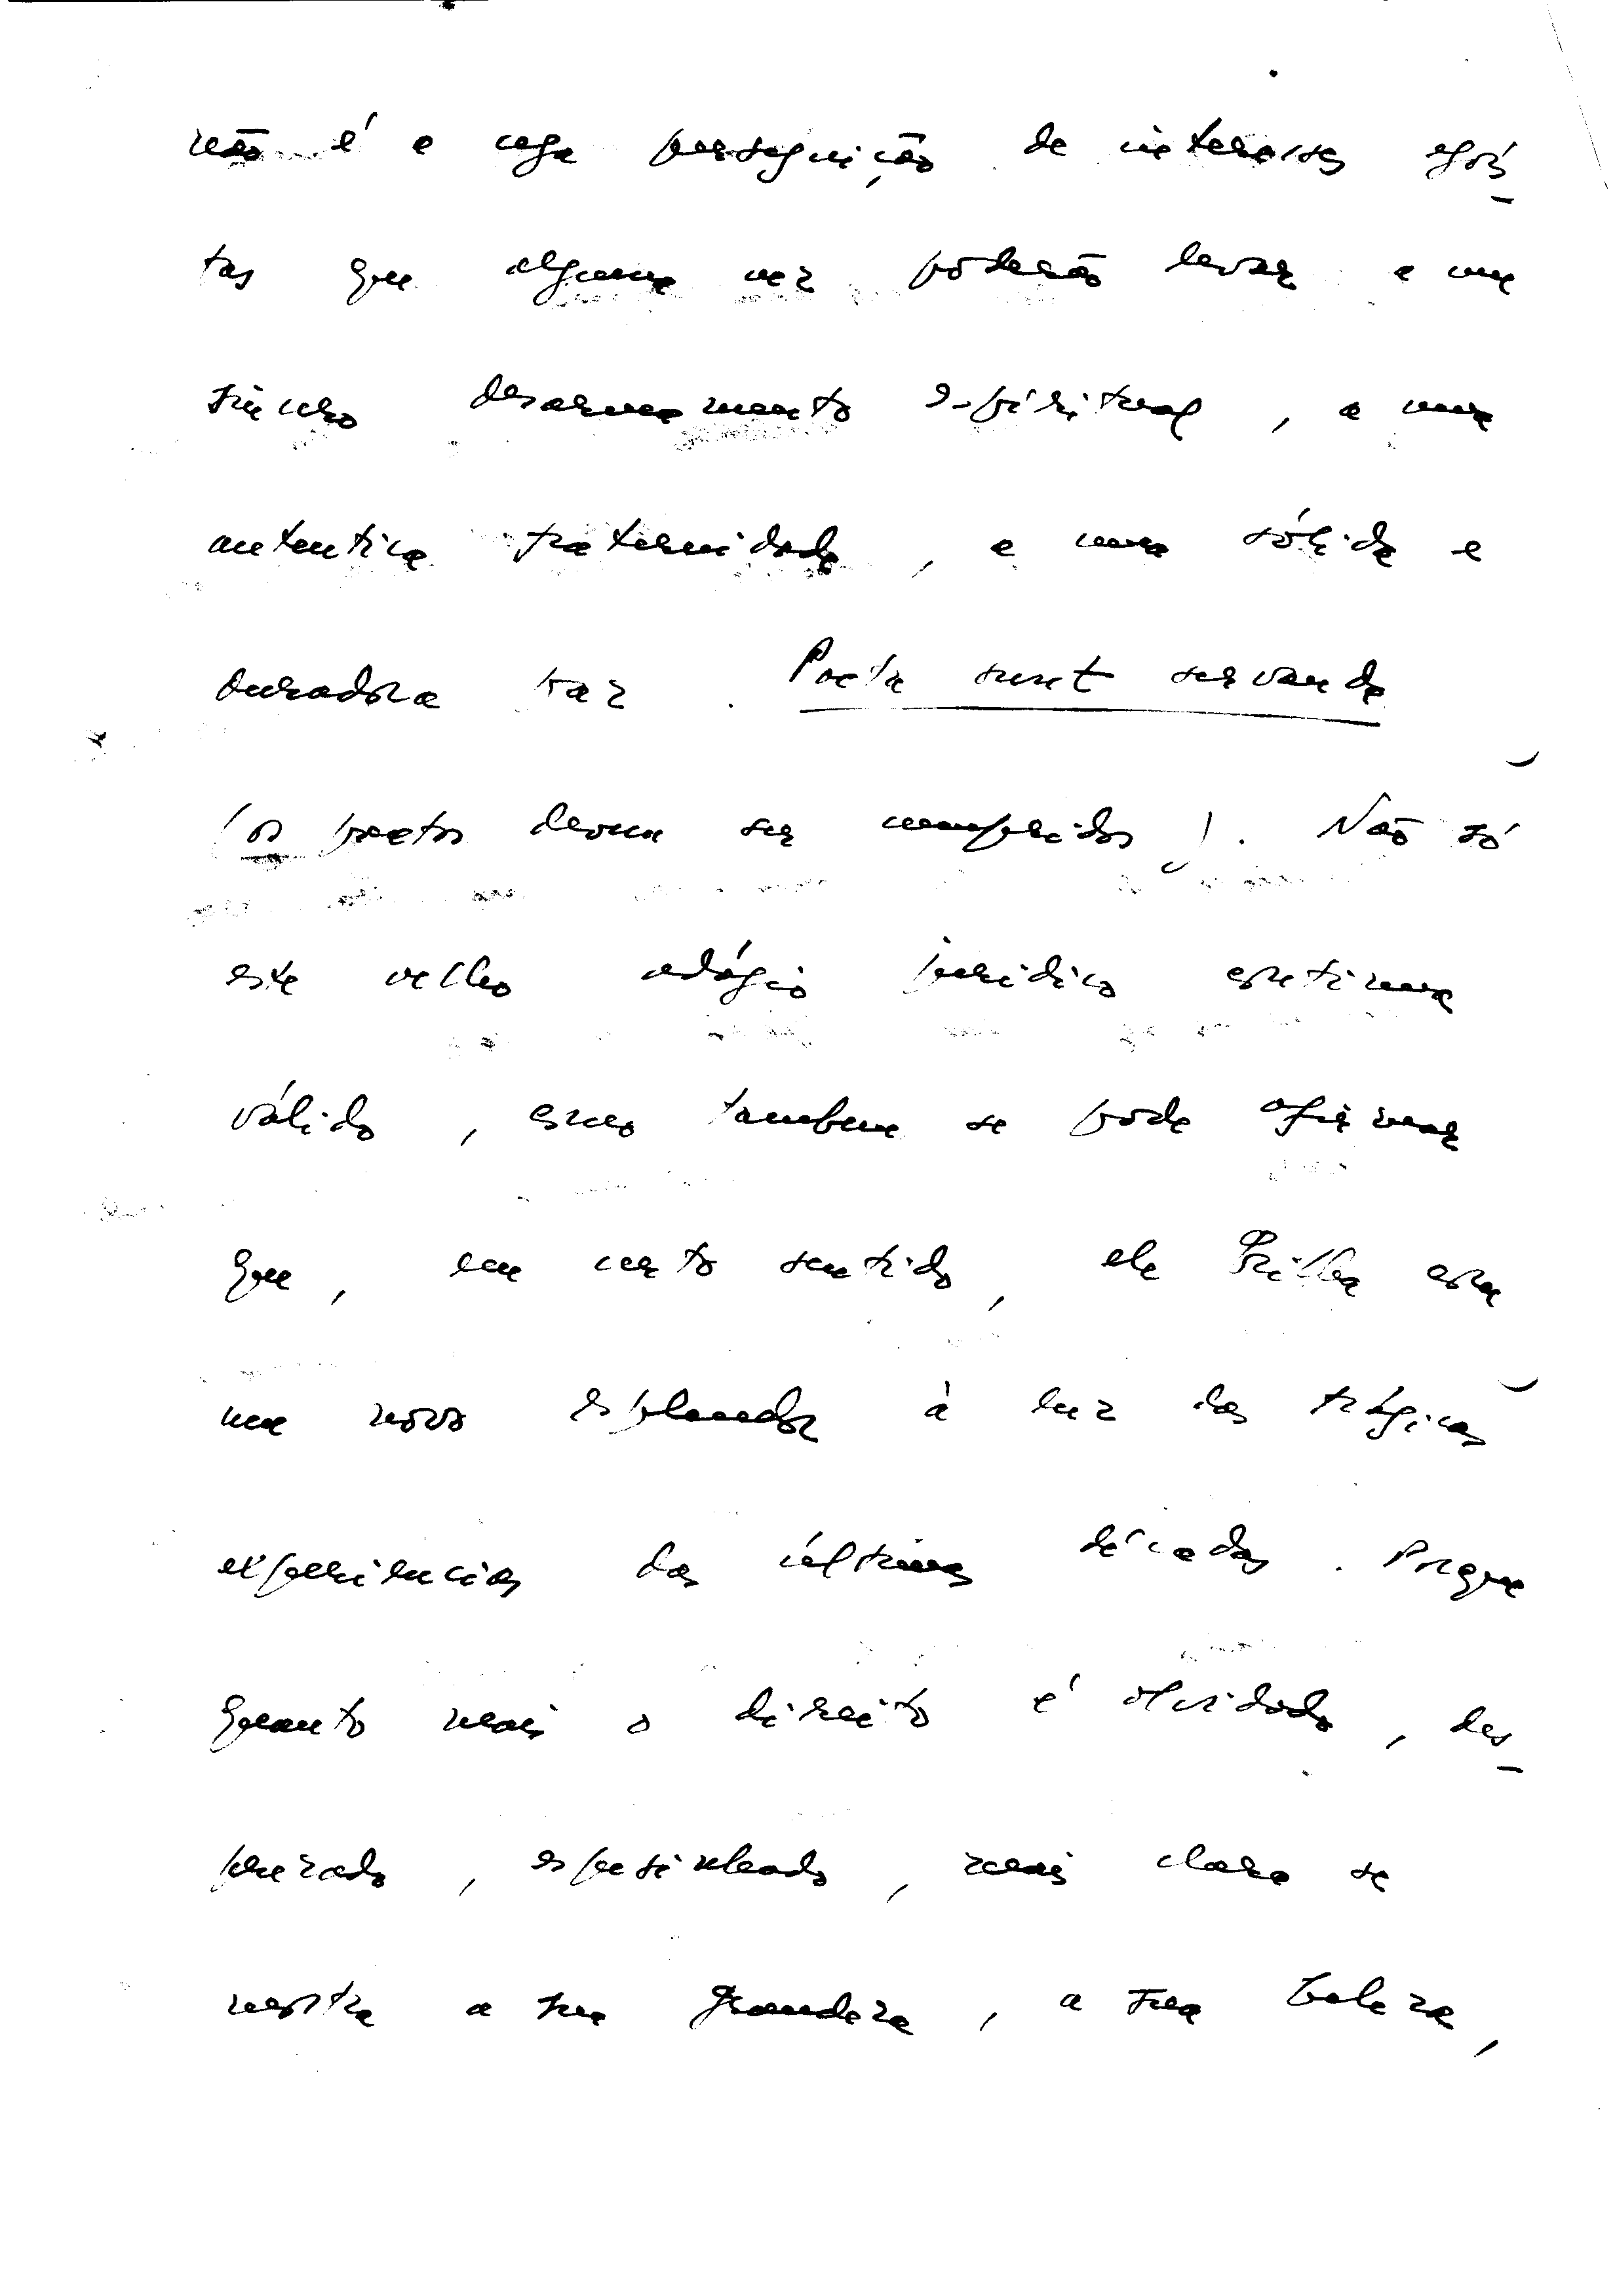 não é a cega perseguição de interesses egoís-
tas que alguma vez poderão levar a um
sincero desarmamento espiritual, a uma
autentica fraternidade, a uma sólida e
duradora paz. Pacta sunt servanda
(os pactos devem ser cumpridos). Não só
este velho adágio juridico continua
válido, como tambem se pode afirmar
que, em certo sentido, ele brilha com
um novo esplendor à luz das trágicas
experiencias das últimas décadas. Porque
quanto mais o direito é olvidado, des-
prezado, espesinhado, mais clara se
mostra a sua grandeza, a sua beleza,